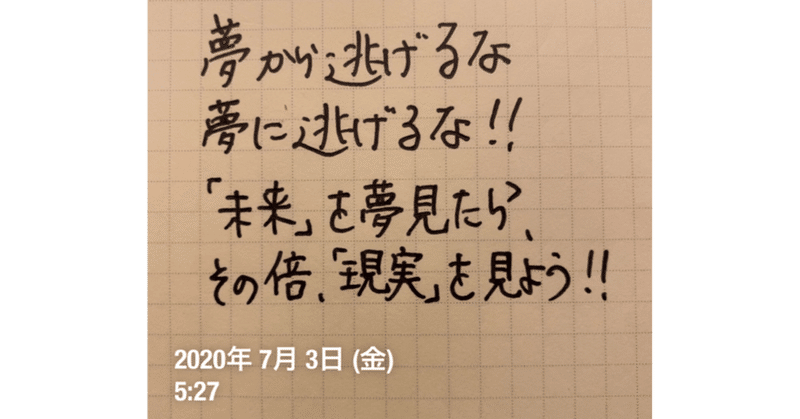 夢から逃げるな
夢に逃げるな!!
「未来」を夢見たら、
その倍、「現実」を見よう!!
2020年 7月 3日 (金)
5:27